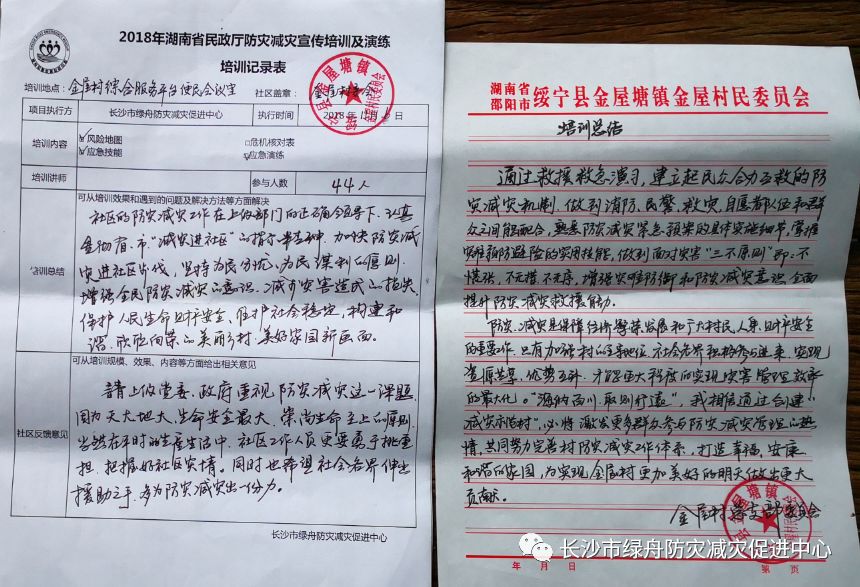 2018年湖南省民政厅防灾减灾宣传培训及演练
培训记录表
培训地点：金屋村综合服务平台便民会议室
社区盖章：金屋村委会
项目执行方
长沙市绿舟防灾减灾促进中心
执行时间
2018年11月6日
培训内容
☑风险地图
□危机核对表
☑应急技能
☑应急演练
培训讲师
参与人数
44人
培训总结
可从培训效果和遇到的问题及解决方法等方面解决
社区的防灾减灾工作在上级部门的正确领导下，认真
贯彻省、市"减灾进社区"的指示精神，加快防灾减
灾进社区步伐，坚持为民分忧、为民谋利的原则，
增强全民防灾减灾的意识，减少灾害造成的损失，
保护人民生命财产安全、维护社会稳定，构建和
谐、欣欣向荣的美丽乡村、美好家园新局面。
社区反馈意见
可从培训规模、效果、内容等方面给出相关意见
首上级党委、政府重视防灾减灾这一课题，
因为天大地大、生命安全最大，崇尚生命至上的原则，
当然在平时的生产生活中，社区工作人员更要勇于挑重
担，把握好社区灾情，同时也希望社会各界伸出
援助之手，多为防灾减灾出一份力。
长沙市绿舟防灾减灾促进中心
湖南省
邵阳市
绥宁县金屋塘镇金屋村民委员会
培训总结
通过救援救急演习，建立起民众合力互救的防
灾减灾机制，做到消防、民警、救灾，自愿者队伍和群
众之间能配合，熟悉防灾减灾紧急预案的具体实施细节，掌握
实用预防避险的实用技能，做到面对灾害"三不原则"即：不
慌张，不无措，不无序，增强灾难防御和防灾减灾意识，全面
提升防灾减灾救援能力。
防灾、减灾是保障经济繁荣发展和广大村民人身、财产安全
的重要工作，只有加强村的主导地位，社会各界积极参与进来，实现
资源共享，优势互补，才能更大程度的实现灾害管理效率
的最大化。"海纳百川，取则行远"，我相信通过创建
减灾示范村"，必将激发更多群众参与防灾减灾管理的热
情，共同努力完善村防灾减灾工作体系，打造幸福，安康，
和谐的家园，为实现金屋村更加美好的明天做出更大
贡献。
金屋村党支部委员会
年 月 日
第 页
长沙市绿舟防灾减灾促进中心